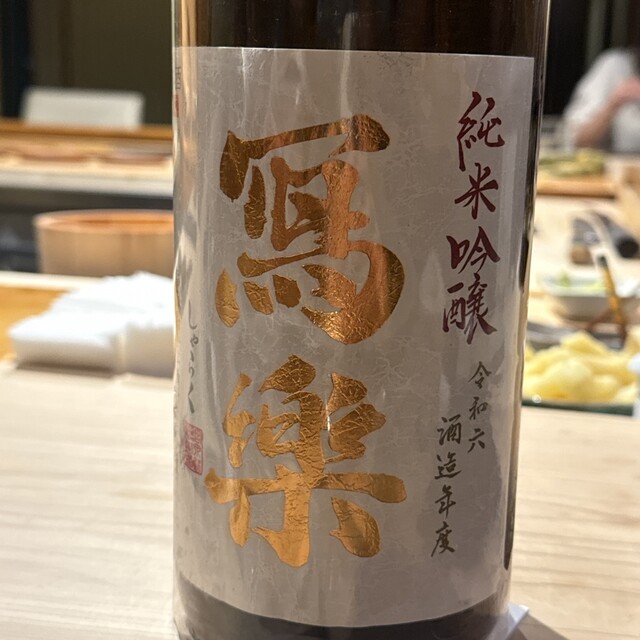 純米吟醸
令和六
酒造年度
寫樂
しゃらく